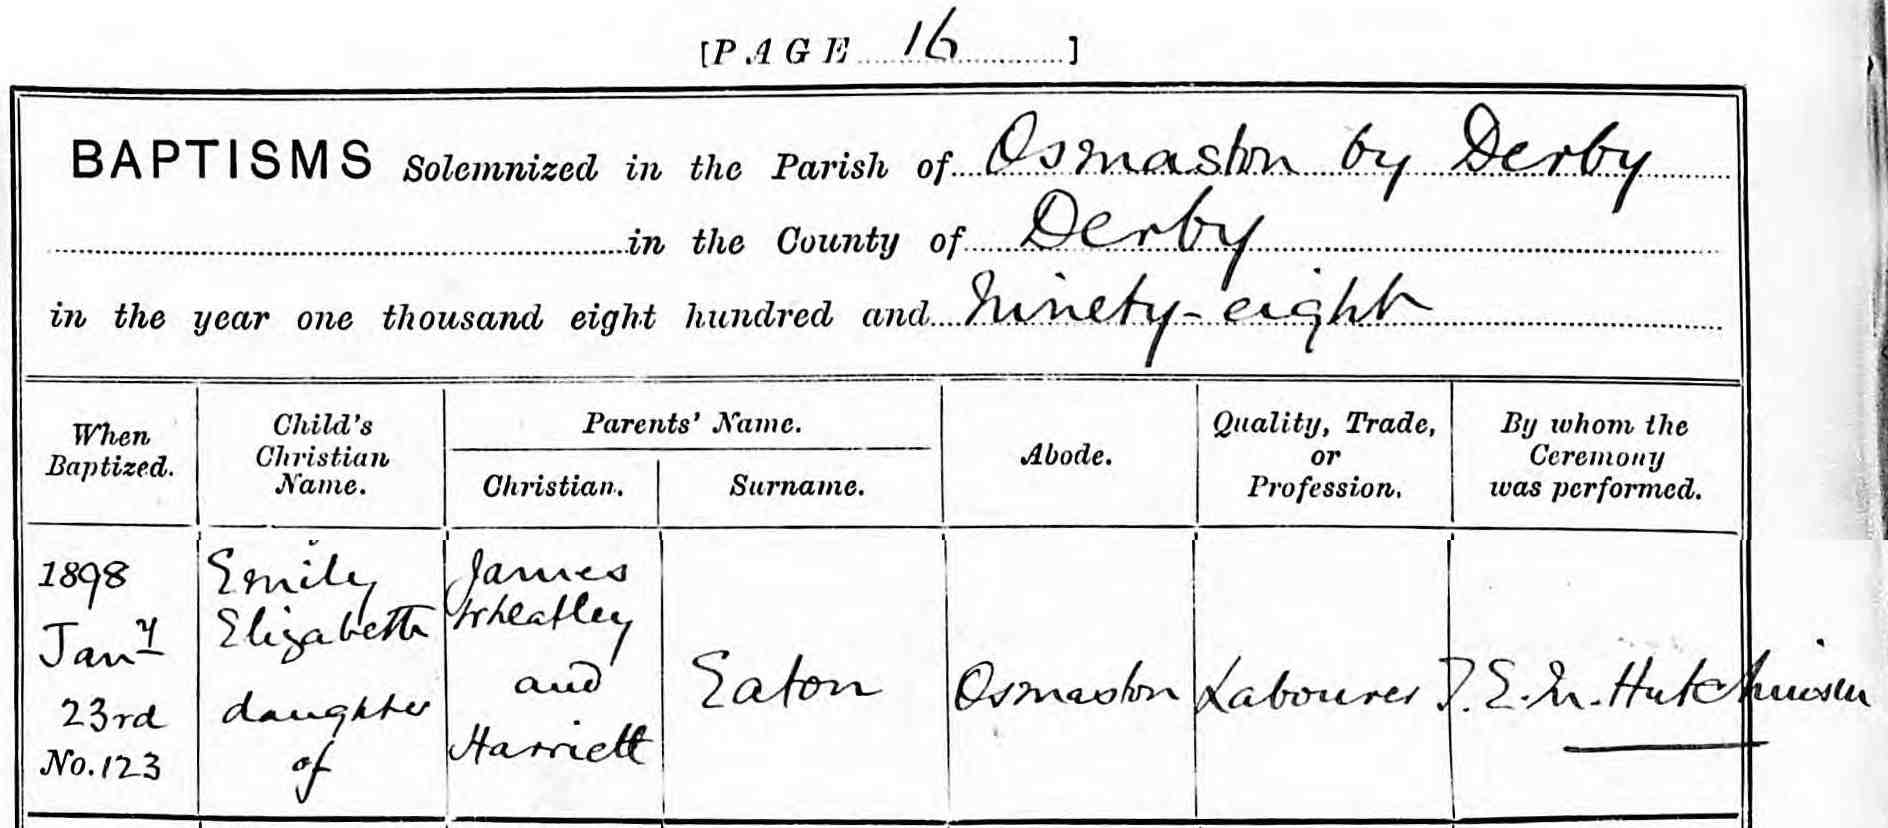 [PAGE 16]
BAPTISMS Solemnized in the Parish of Osmaston by Derby
in the County of Derby
in the year one thousand eight hundred and Ninety-eight
When Baptized.
Child's Christian Name.
Parents' Name.
Christian.
Surname.
Abode.
Quality, Trade, or Profession.
By whom the Ceremony was performed.
1898
Jany
23rd
No. 123
Emily
Elizabeth
daughter
of
James
Wheatley
and
Harriett
Eaton
Osmaston
Labourer
T. E. M. Hutchinson